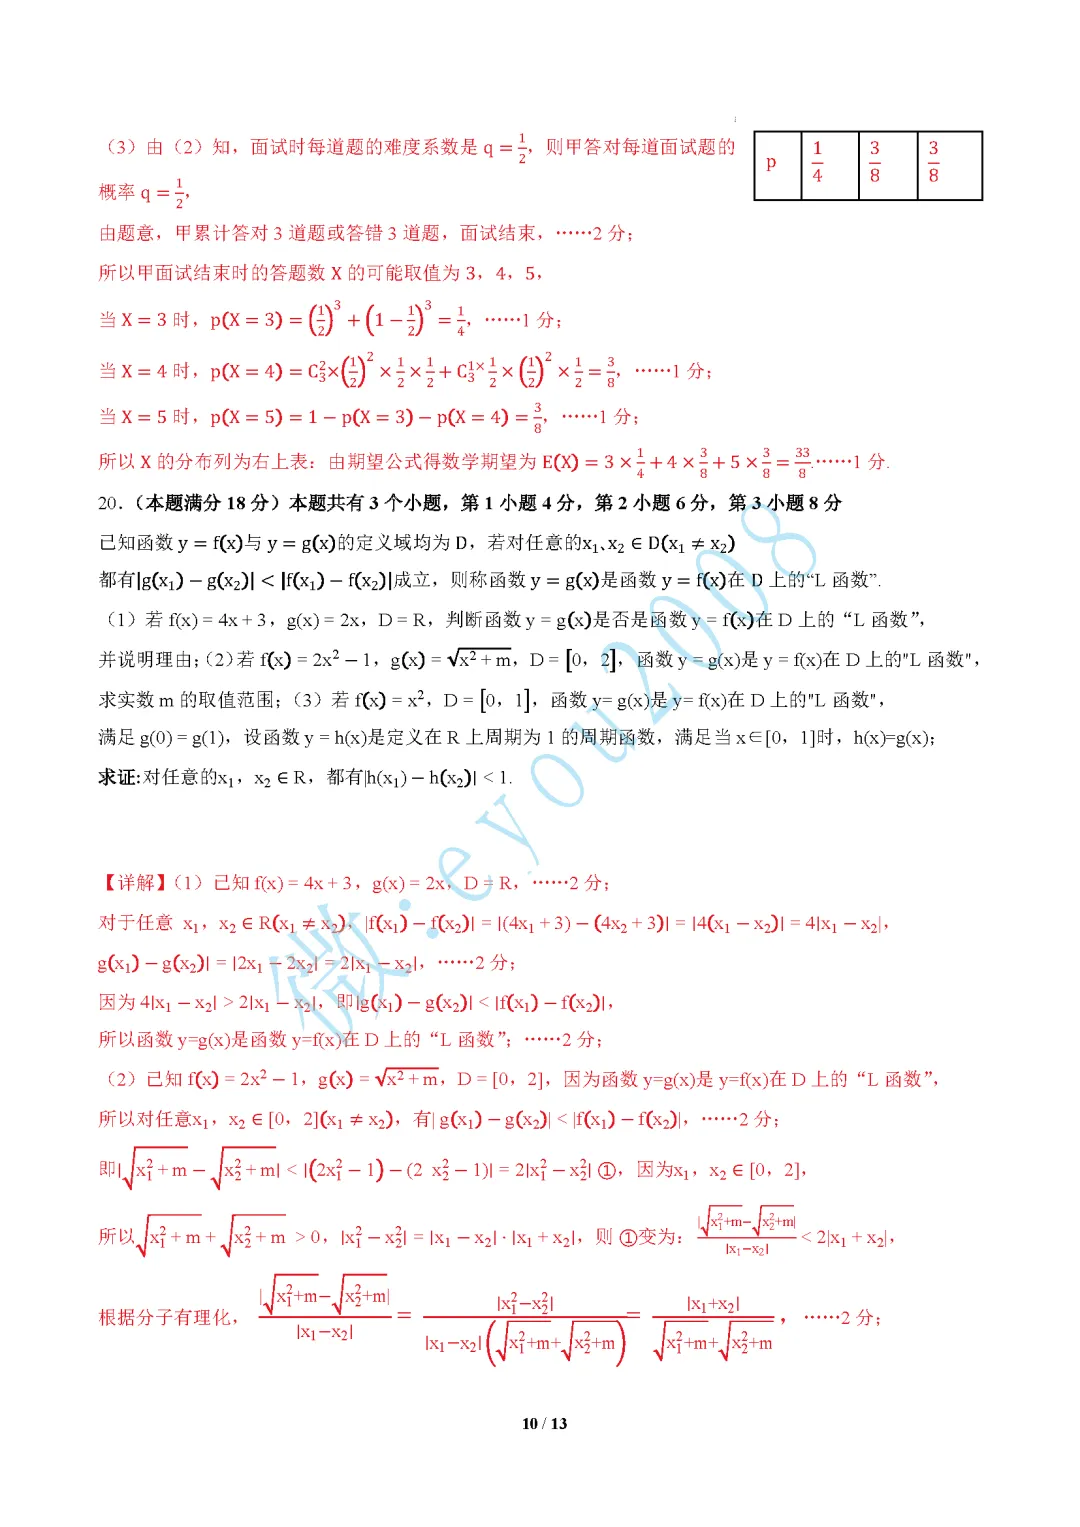 （3）由（2）知，面试时每道题的难度系数是 q = 1/2，则甲答对每道面试题的
概率 q = 1/2，
p 1/4 3/8 3/8
由题意，甲累计答对 3 道题或答错 3 道题，面试结束，……2 分；
所以甲面试结束时的答题数 X 的可能取值为 3，4，5，
当 X = 3 时，p(X = 3) = (1/2)^3 + (1 − 1/2)^3 = 1/4，……1 分；
当 X = 4 时，p(X = 4) = C_3^2×(1/2)^2 × 1/2 × 1/2 + C_3^1× 1/2 × (1/2)^2 × 1/2 = 3/8，……1 分；
当 X = 5 时，p(X = 5) = 1 − p(X = 3) − p(X = 4) = 3/8，……1 分；
所以 X 的分布列为右上表：由期望公式得数学期望为 E(X) = 3 × 1/4 + 4 × 3/8 + 5 × 3/8 = 33/8.……1 分.
20.（本题满分 18 分）本题共有 3 个小题，第 1 小题 4 分，第 2 小题 6 分，第 3 小题 8 分
已知函数 y = f(x)与 y = g(x)的定义域均为 D，若对任意的x₁、x₂ ∈ D(x₁ ≠ x₂)
都有|g(x₁) − g(x₂)| < |f(x₁) − f(x₂)|成立，则称函数 y = g(x)是函数 y = f(x)在 D 上的“L 函数”.
（1）若 f(x) = 4x + 3，g(x) = 2x，D = R，判断函数 y = g(x)是否是函数 y = f(x)在 D 上的“L 函数”，
并说明理由；（2）若 f(x) = 2x² − 1，g(x) = √(x² + m)，D = [0，2]，函数 y = g(x)是 y = f(x)在 D 上的"L 函数"，
求实数 m 的取值范围；（3）若 f(x) = x²，D = [0，1]，函数 y= g(x)是 y= f(x)在 D 上的"L 函数"，
满足 g(0) = g(1)，设函数 y = h(x)是定义在 R 上周期为 1 的周期函数，满足当 x∈[0，1]时，h(x)=g(x)；
求证:对任意的x₁，x₂ ∈ R，都有|h(x₁) − h(x₂)| < 1.
【详解】（1）已知 f(x) = 4x + 3，g(x) = 2x，D = R，……2 分；
对于任意 x₁，x₂ ∈ R(x₁ ≠ x₂)，|f(x₁) − f(x₂)| = |(4x₁ + 3) − (4x₂ + 3)| = |4(x₁ − x₂)| = 4|x₁ − x₂|，
g(x₁) − g(x₂)| = |2x₁ − 2x₂| = 2|x₁ − x₂|，……2 分；
因为 4|x₁ − x₂| > 2|x₁ − x₂|，即|g(x₁) − g(x₂)| < |f(x₁) − f(x₂)|，
所以函数 y=g(x)是函数 y=f(x)在 D 上的“L 函数”；……2 分；
（2）已知 f(x) = 2x² − 1，g(x) = √(x² + m)，D = [0，2]，因为函数 y=g(x)是 y=f(x)在 D 上的“L 函数”，
所以对任意x₁，x₂ ∈ [0，2](x₁ ≠ x₂)，有| g(x₁) − g(x₂)| < |f(x₁) − f(x₂)|，……2 分；
即|√(x₁² + m) − √(x₂² + m)| < |(2x₁² − 1) − (2 x₂² − 1)| = 2|x₁² − x₂²| ①，因为x₁，x₂ ∈ [0，2]，
所以√(x₁² + m) + √(x₂² + m) > 0，|x₁² − x₂²| = |x₁ − x₂| · |x₁ + x₂|，则 ①变为：|√(x₁²+m)−√(x₂²+m)|/|x₁−x₂| < 2|x₁ + x₂|，
根据分子有理化，|√(x₁²+m)−√(x₂²+m)|/|x₁−x₂| = |x₁²−x₂²|/|x₁−x₂|(√(x₁²+m)+√(x₂²+m)) = |x₁+x₂|/√(x₁²+m)+√(x₂²+m)，……2 分；
微:eyou2008
10 / 13